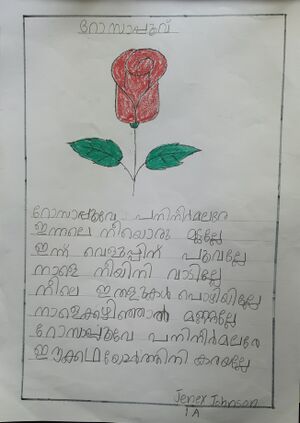 റോസാപ്പൂവ്
റോസാപ്പൂവേ പനിനീർമലരേ
ഇന്നലെ നീയൊരു മുട്ടല്ലേ
ഇന്ന് വെളുപ്പിന് പൂവല്ലേ
നാളെ നീയിനി വാടില്ലേ
നിലെ ഇതളുകൾ പൊഴിയില്ലേ
നാളെക്കഴിഞ്ഞാൽ മണ്ണല്ലേ
റോസാപ്പൂവേ പനിനീർമലരേ
ഈക്കഥയോർത്തിനി കരയല്ലേ
Jener Johnson
1 A